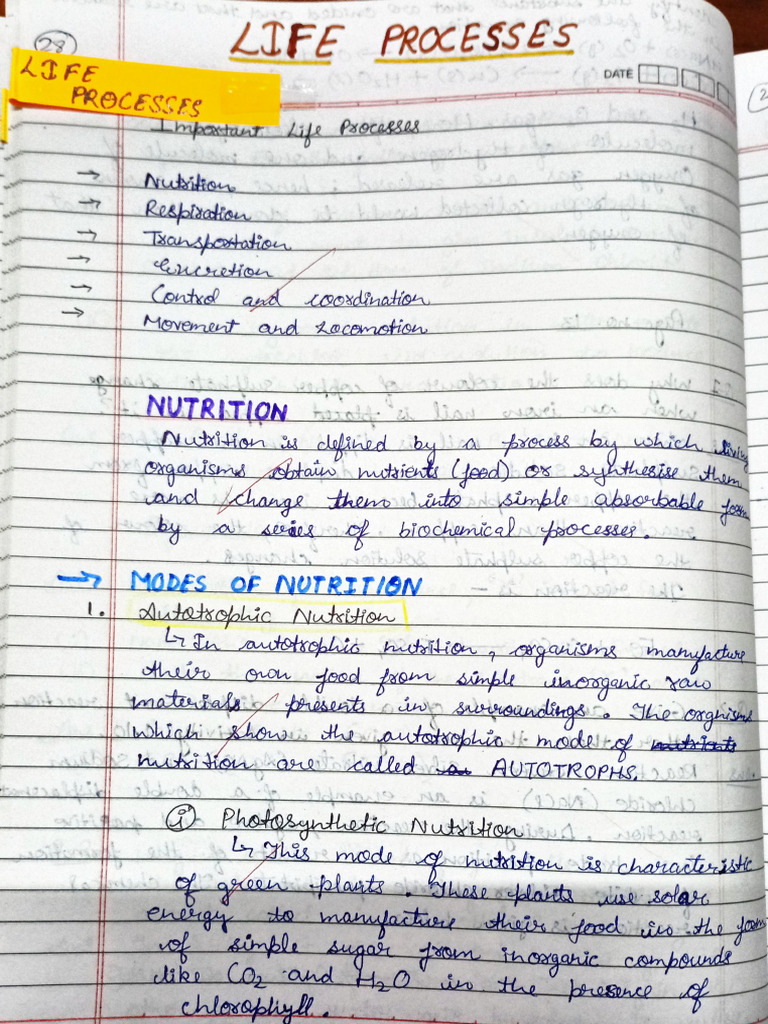 28
LIFE PROCESSES
LIFE
PROCESSES
DATE
Important Life Processes
→ Nutrition
→ Respiration
→ Transportation
→ Excretion
→ Control and coordination
→ Movement and Locomotion
NUTRITION
Nutrition is defined by a process by which living
organisms obtain nutrients (food) or synthesise them
and change them into simple absorbable form
by a series of biochemical processes.
→ MODES OF NUTRITION
1. Autotrophic Nutrition
↳ In autotrophic nutrition, organisms manufacture
their own food from simple inorganic raw
materials presents in surroundings. The orgnisms
which shows the autotrophic mode of nutrients
nutrition are called AUTOTROPHS.
(i) Photosynthetic Nutrition
↳ This mode of nutrition is characteristic
of green plants. These plants use solar
energy to manufacture their food in the form
of simple sugar from inorganic compounds
like CO2 and H2O in the presence of
chlorophyll.